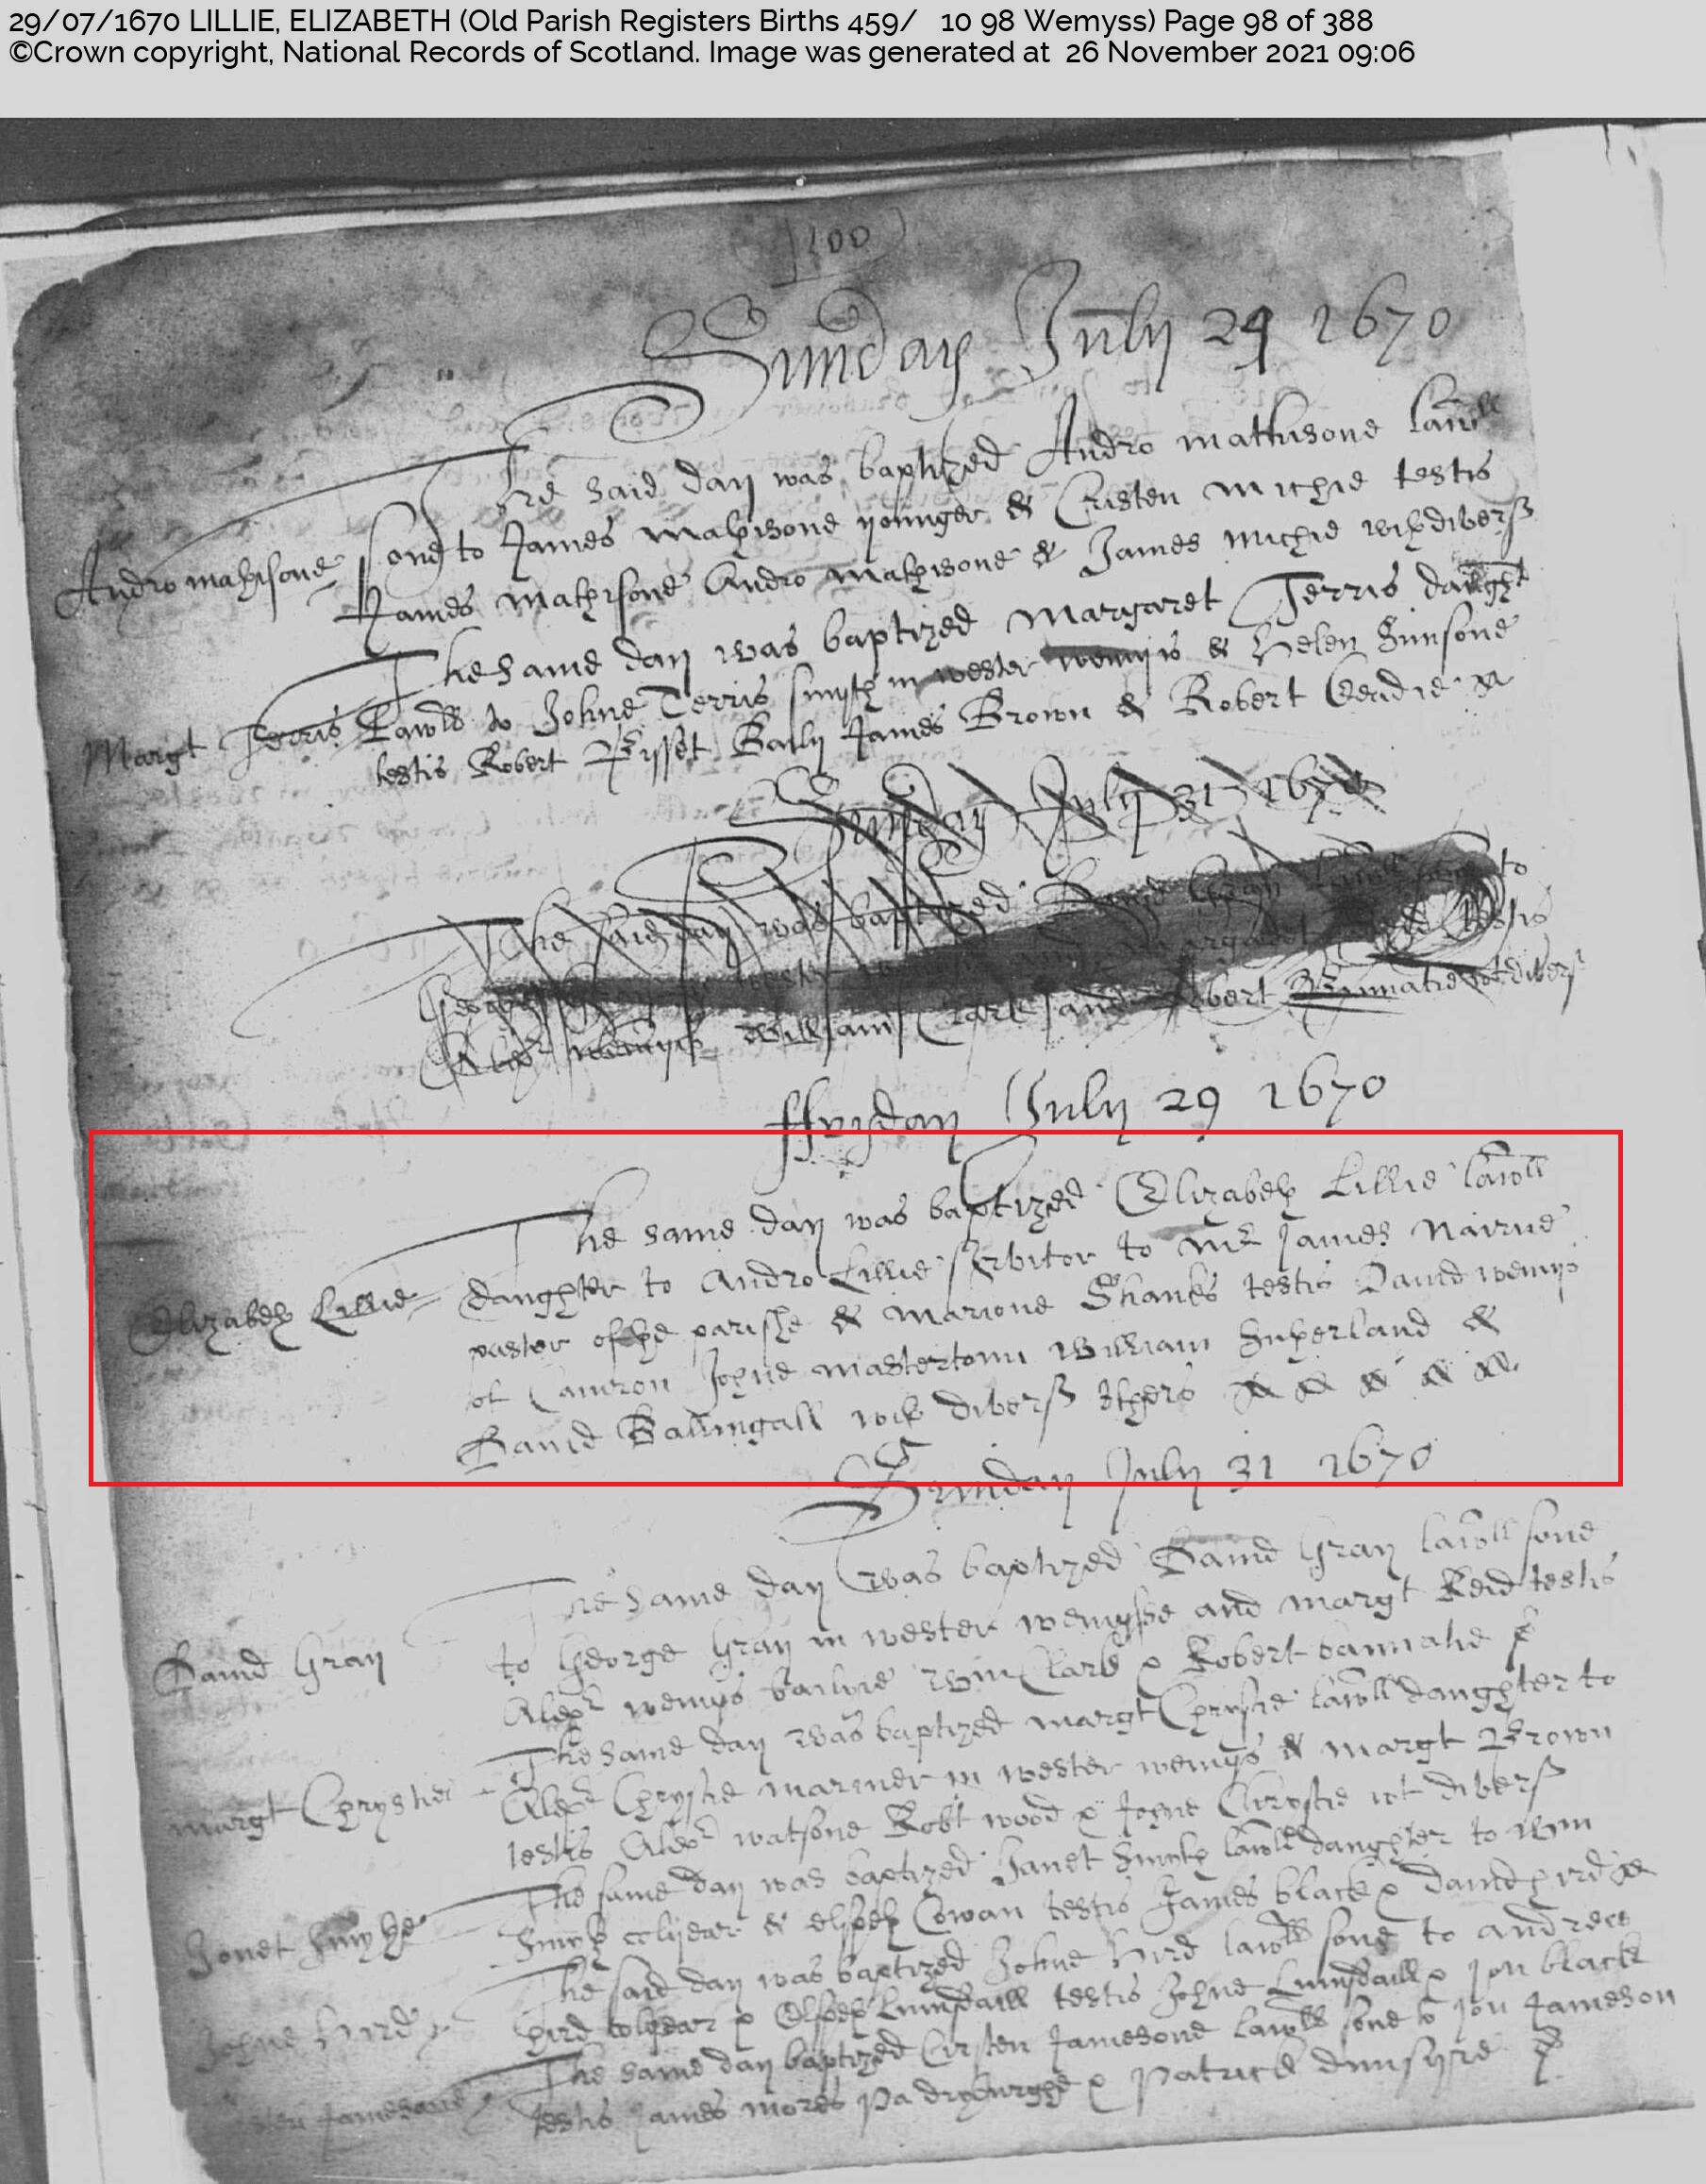 29/07/1670 LILLIE, ELIZABETH (Old Parish Registers Births 459/ 10 98 Wemyss) Page 98 of 388
©Crown copyright, National Records of Scotland. Image was generated at 26 November 2021 09:06
100
Sunday July 24 1670
The said day was baptized Andro mathisone lawll
Andro mathisone
sone to James mathisone younger & Cristen michie testis
James mathisone Andro mathisone & James michie with divers
The same day was baptized Margaret Terris daught
Margt Terris
Lawll to Johne Terris smyth in wester wemyis & Helen Simsone
testis Robert Baily James Brown & Robert
Sunday July 31 1670
The said day was baptized David Gray lawll to
George testis
Alexr wemyis William Clark and Robert divers
ffryday July 29 1670
The same day was baptized Elizabeth Lillie lawll
Elizabeth Lillie
daughter to Andro Lillie servitor to mr James Nairne
pastor of the parishe & Marione Shanks testis David wemys
of Johne mastertoun William Sutherland &
David Ballingall with divers others
Sunday July 31 1670
The same day was baptized David Gray lawll sone
David Gray
to George Gray in wester wemysse and margt Reid testis
Alexr wemys bailyie Wm Clark & Robert bannatie
The same day was baptized margt Chrystie lawll daughter to
margt Chrystie
Alexr Chrystie mariner in wester wemys & margt Brown
testis Alexr watsone Robt wood & Johne Chrystie wt divers
The same day was baptized Janet Smyth lawll daughter to Wm
Jonet Smythe
Smyth colyear & elspeth Cowan testis James black & david hird
The said day was baptized Johne Hird lawll sone to andrew
Johne Hird
hird colyear & Elspeth Lumsdaill testis Johne Lumsdaill & Jon black
The same day baptized Cirsten Jamesone lawll to Jon Jameson
Jamesone
testis James & Patrick